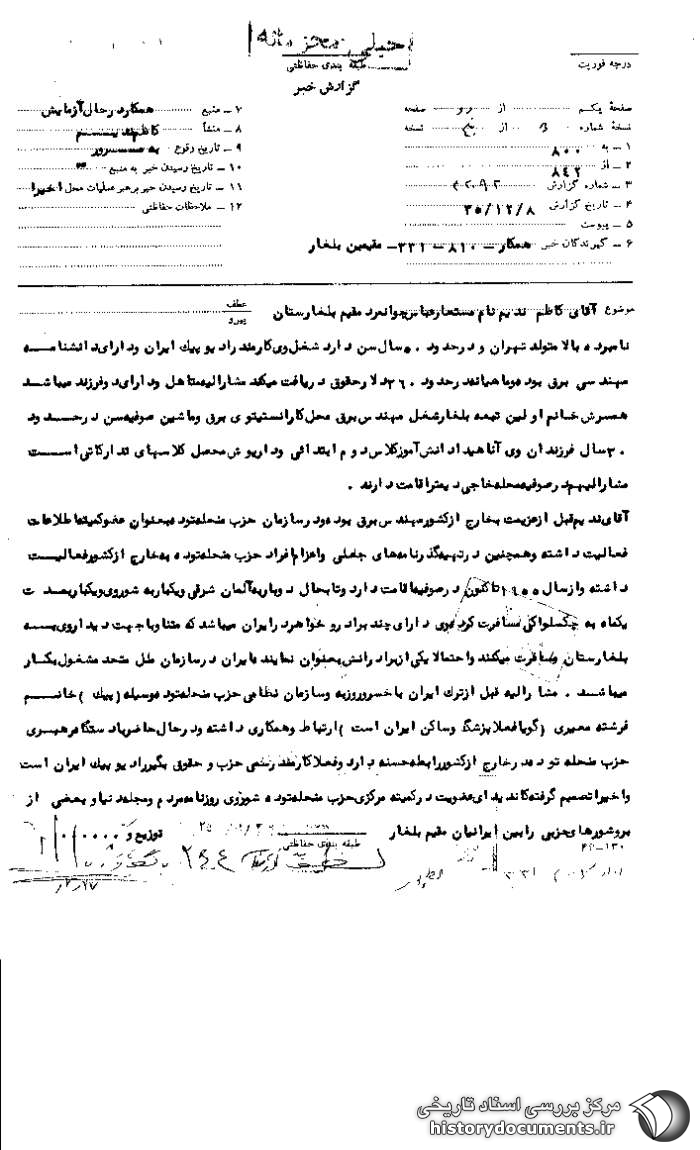 خیلی محرمانه
درجه فوریت
طبقه بندی حفاظتی
گزارش خبر
صفحهٔ یکم از دو صفحه
نسخهٔ شماره از نسخه
۱ ـ به ۸۰۰
۲ ـ از ۸۴۲
۳ ـ شماره گزارش
۴ ـ تاریخ گزارش ۳۵/۱۲/۸
۵ ـ پیوست
۶ ـ گیرندگان خبر همکار ـ ۸۱۰ ـ ۳۳۱ ـ مقیمین بلغار
۷ ـ منبع همکار در حال آزمایش
۸ ـ منشأ کاظم ندیم
۹ ـ تاریخ وقوع به مرور
۱۰ ـ تاریخ رسیدن خبر به منبع
۱۱ ـ تاریخ رسیدن خبر برهبر عملیات محل اخیرا
۱۲ ـ ملاحظات حفاظتی
موضوع آقای کاظم ندیم نام مستعار عباس جوانمرد مقیم بلغارستان
عطف
پیرو
نامبرده بالا متولد تهران و در حدود ۵۰ سال سن دارد شغل وی کارمند رادیو پیک ایران و دارای دانشنامه
مهندسی برق بوده و ماهیانه در حدود ۳۶۰ دلار حقوق دریافت میکند مشارالیه متاهل و دارای دو فرزند میباشد
همسرش خانم اولین تبعه بلغار شغل مهندس برق محل کار انستیتوی برق و ماشین صوفیه سن در حدود
۳۰ سال فرزندان وی آناهید دانش‌آموز کلاس دوم ابتدائی و داریوش محصل کلاسهای تدارکاتی است
مشارالیهم در صوفیه محله خاجی دیمتر اقامت دارند .
آقای ندیم قبل از عزیمت بخارج از کشور مهندس برق بوده و در سازمان حزب منحله توده بعنوان عضو کمیته اطلاعات
فعالیت داشته و همچنین در تهیه گذرنامه‌های جعلی و اعزام افراد حزب منحله توده به خارج از کشور فعالیت
داشته و از سال تاکنون در صوفیه اقامت دارد و تا بحال دو بار به آلمان شرقی و یکبار به شوروی و یکبار بمدت
یکماه به چکسلواکی مسافرت کرده وی دارای چند برادر و خواهر در ایران میباشد که متناوبا جهت دیدار وی به
بلغارستان مسافرت میکنند و احتمالا یکی از برادرانش بعنوان نماینده ایران در سازمان ملل متحد مشغول بکار
میباشد . مشارالیه قبل از ترک ایران با خسرو روزبه و سازمان نظامی حزب منحله توده بوسیله ( پیک ) خانم
فرشته معیری ( گویا فعلا پزشگ و ساکن ایران است ) ارتباط و همکاری داشته و در حال حاضر با دستگاه رهبری
حزب منحله توده در خارج از کشور رابطه حسنه دارد و فعلا کارمند رسمی حزب و حقوق بگیر رادیو پیک ایران است
و اخیرا تصمیم گرفته کاندیدای عضویت در کمیته مرکزی حزب منحله توده شود وی روزنامه مردم و مجله دنیا و بعضی از
بروشورهای حزبی را بین ایرانیان مقیم بلغار توزیع و
طبقه بندی حفاظتی
مرکز بررسی اسناد تاریخی
historydocuments.ir